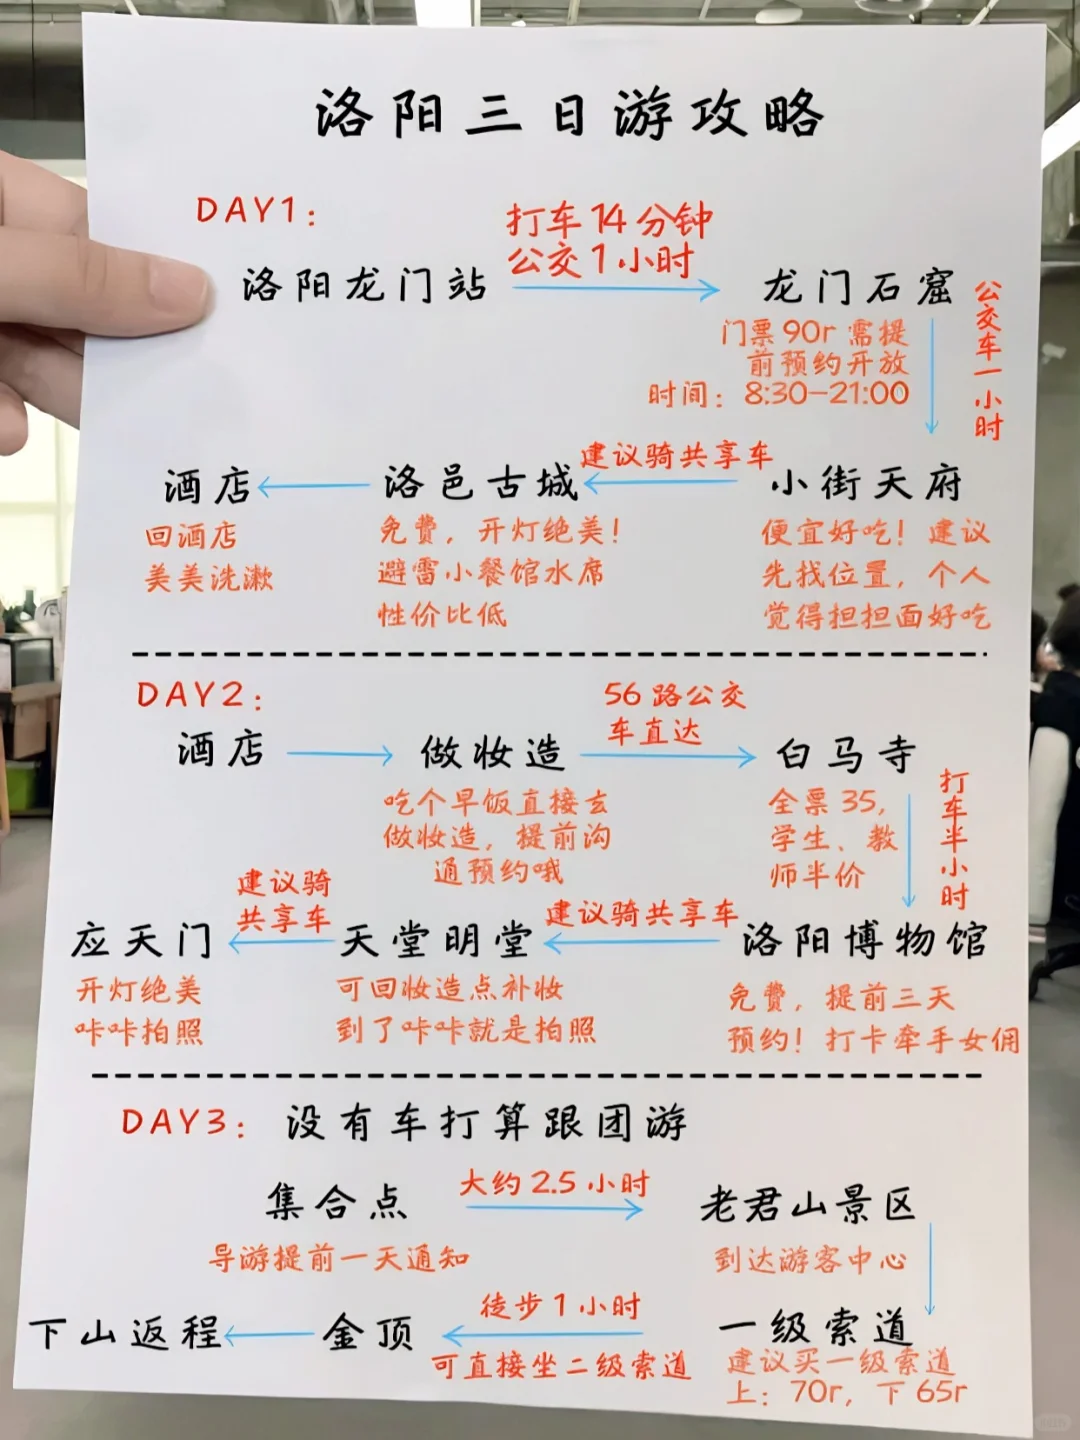 洛阳三日游攻略
DAY1：
打车14分钟
公交1小时
洛阳龙门站
龙门石窟
门票90r 需提
前预约开放
时间：8:30—21:00
公交车一小时
酒店
洛邑古城
建议骑共享车
小街天府
回酒店
美美洗漱
免费，开灯绝美！
避雷小餐馆水席
性价比低
便宜好吃！建议
先找位置，个人
觉得担担面好吃
DAY2：
酒店
做妆造
56路公交
车直达
白马寺
吃个早饭直接去
做妆造，提前沟
通预约哦
全票35，
学生、教
师半价
打车半小时
应天门
建议骑
共享车
天堂明堂
建议骑共享车
洛阳博物馆
开灯绝美
咔咔拍照
可回妆造点补妆
到了咔咔就是拍照
免费，提前三天
预约！打卡牵手女佣
DAY3：没有车打算跟团游
集合点
大约2.5小时
老君山景区
导游提前一天通知
到达游客中心
下山返程
金顶
徒步1小时
可直接坐二级索道
一级索道
建议买一级索道
上：70r，下65r